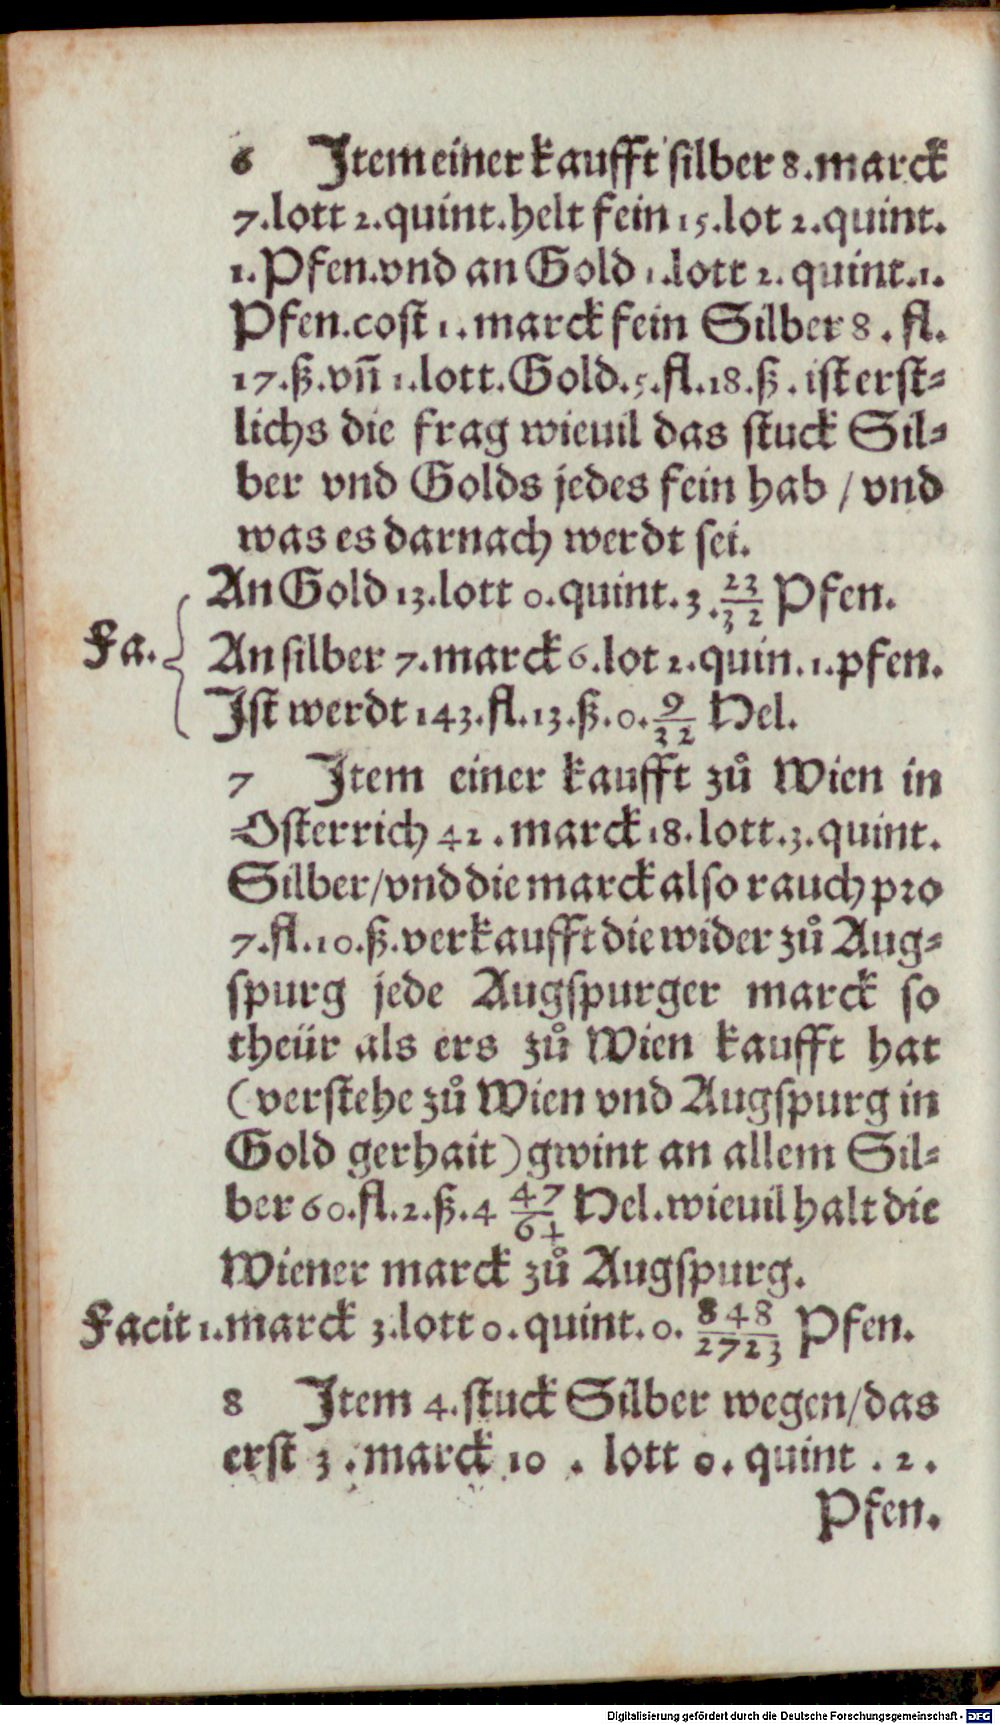 6 Item einer kaufft silber 8. marck
7. lott 2. quint. helt fein 15. lot 2. quint.
1. Pfen. vnd an Gold 1. lott 2. quint. 1.
Pfen. cost 1. marck fein Silber 8. fl.
17. ß. vñ 1. lott. Gold. 5. fl. 18. ß. ist erst⸗
lichs die frag wieuil das stuck Sil⸗
ber vnd Golds jedes fein hab / vnd
was es darnach werdt sei.
An Gold 13. lott 0. quint. 3. 23/32 Pfen.
Fa. An silber 7. marck 6. lot 2. quin. 1. pfen.
Ist werdt 143. fl. 13. ß. 0. 9/32 Hel.
7 Item einer kaufft zů Wien in
Osterrich 42. marck 18. lott. 3. quint.
Silber / vnd die marck also rauch pro
7. fl. 10. ß. verkaufft die wider zů Aug⸗
spurg jede Augspurger marck so
theür als ers zů Wien kaufft hat
(verstehe zů Wien vnd Augspurg in
Gold gerhait) gwint an allem Sil⸗
ber 60. fl. 2. ß. 4 47/64 Hel. wieuil halt die
Wiener marck zů Augspurg.
Facit 1. marck 3. lott 0. quint. 0. 848/2723 Pfen.
8 Item 4. stuck Silber wegen / das
erst 3. marck 10. lott 0. quint. 2.
Pfen.
Digitalisierung gefördert durch die Deutsche Forschungsgemeinschaft - DFG